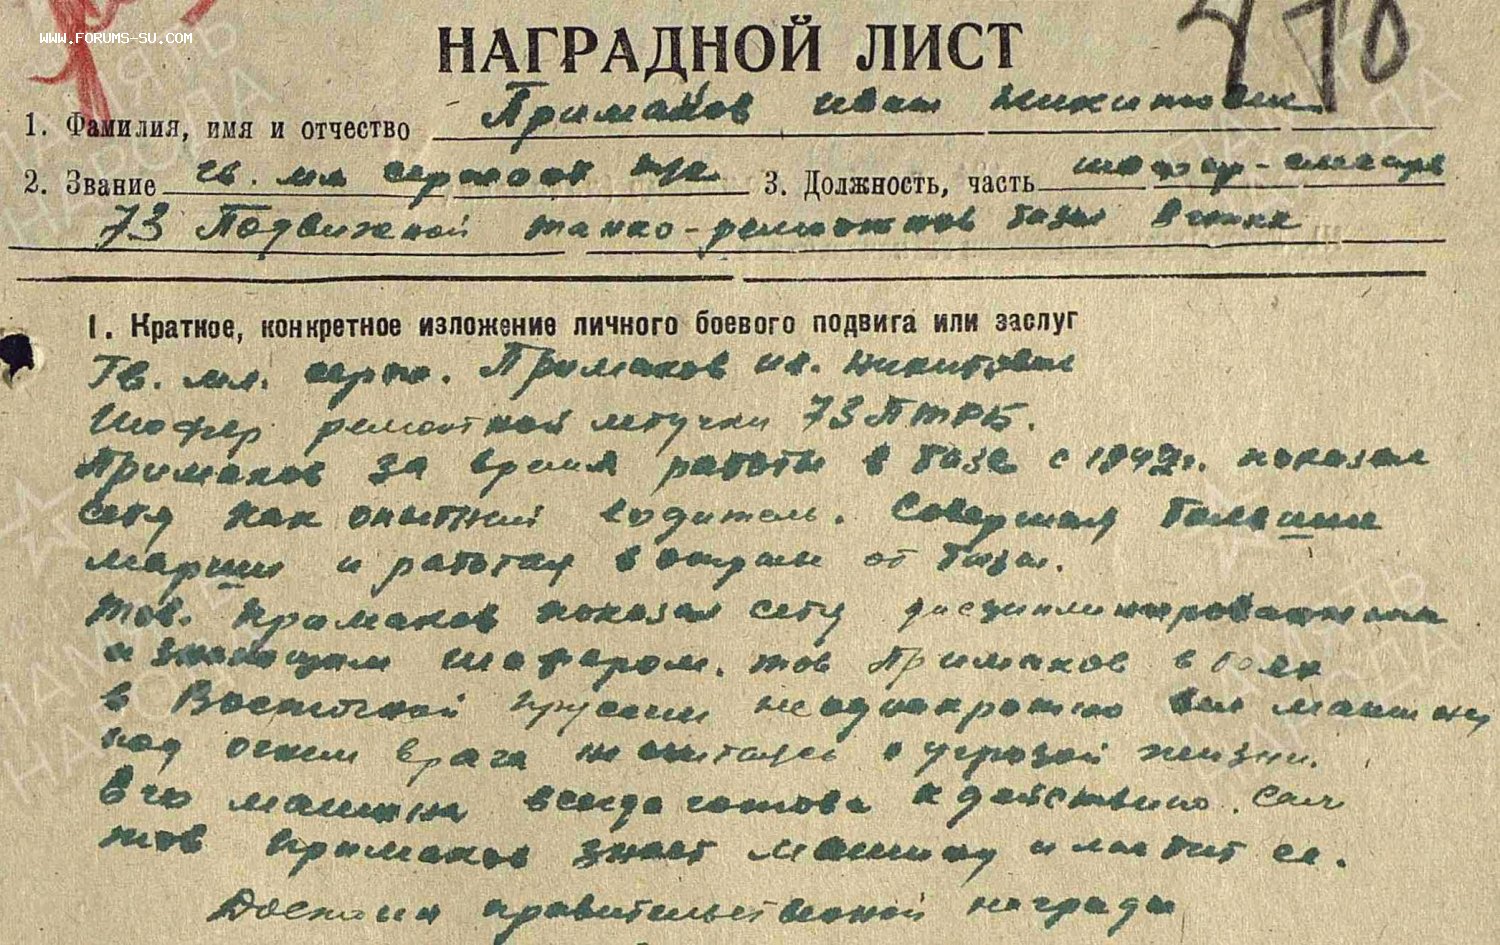 WWW.FORUMS-SU.COM
НАГРАДНОЙ ЛИСТ
1. Фамилия, имя и отчество Примаков Иван Никитович
2. Звание гв. мл сержант 3. Должность, часть шофер-слесарь
73 Подвижной танко-ремонтной базы
1. Краткое, конкретное изложение личного боевого подвига или заслуг
Гв. мл. серж. Примаков Ив. Никитович
Шофер ремонтной летучки 73 ПТРБ.
Примаков за время работы в базе с 1942г. показал
себя как опытный водитель. Совершая большие
марши и работая в отрыве от базы.
Тов. Примаков показал себя дисциплинированным
и знающим шофером. тов Примаков в боях
в Восточной Пруссии неоднократно вел машину
под огнем врага не считаясь с угрозой жизни.
Его машина всегда готова к действию. Сам
тов Примаков знает машину и любит ее.
Достоин правительственной награды
ПАМЯТЬ НАРОДА